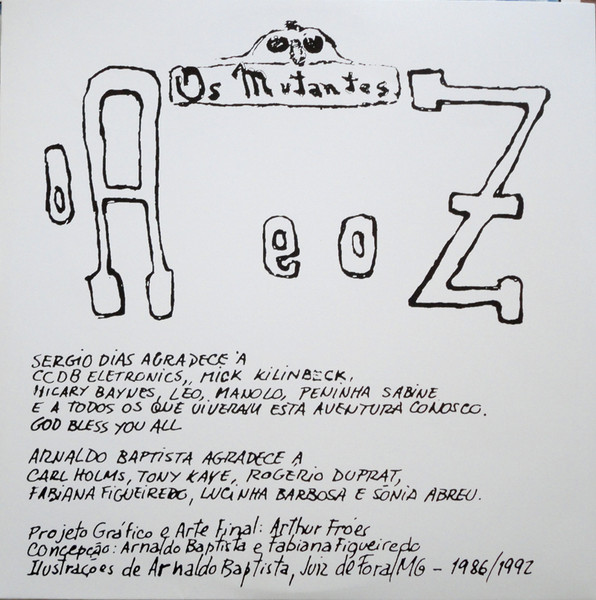 Os Mutantes
O A e o Z
SERGIO DIAS AGRADECE À
CCDB ELETRONICS, MICK KILINBECK,
HICARY BAYNES, LÉO, MANOLO, PENINHA SABINE
E A TODOS OS QUE VIVERAM ESTA AVENTURA CONOSCO.
GOD BLESS YOU ALL
ARNALDO BAPTISTA AGRADECE A
CARL HOLMS, TONY KAYE, ROGERIO DUPRAT,
FABIANA FIGUEIREDO, LUCINHA BARBOSA E SÔNIA ABREU.
Projeto Gráfico e Arte Final: Arthur Fróes
Concepção: Arnaldo Baptista e Fabiana Figueiredo
Ilustrações de Arnaldo Baptista, Juiz de Fora/MG - 1986/1992